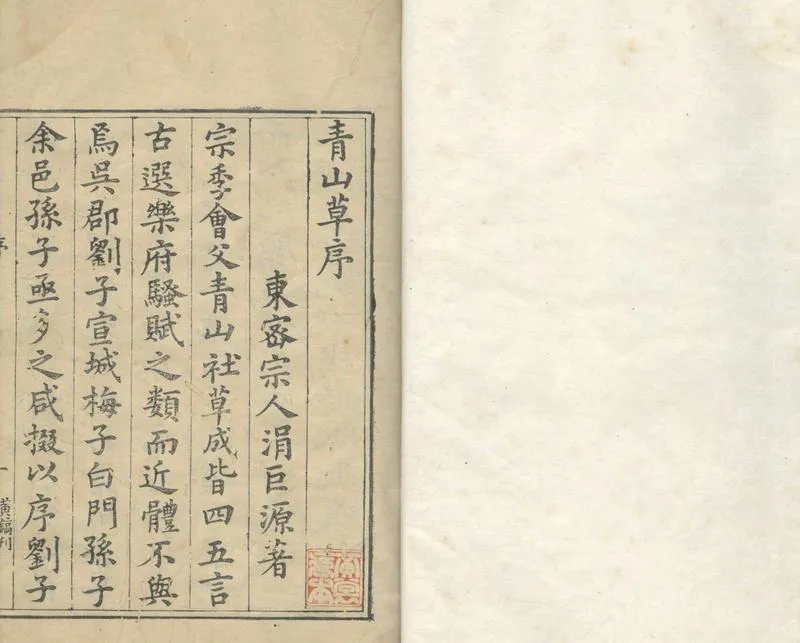 青山草序
東宻宗人涓巨源著
宗季會父青山社草成皆四五言
古選樂府騷賦之類而近體不與
焉吳郡劉子宣城梅子白門孫子
余邑孫子亟多之咸掇以序劉子
序
一
黃鎬刊